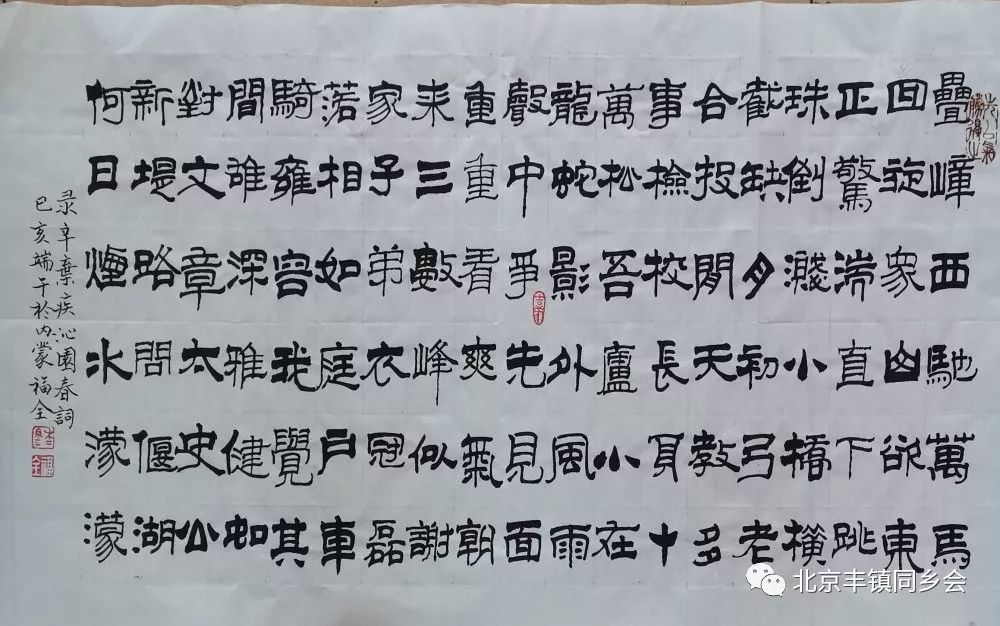 疊嶂西馳萬馬
回旋衆山欲東
正驚湍直下跳
珠倒濺小橋橫
截缺月初弓老
合投閒天教多
事檢校長身十
萬松吾廬小在
龍蛇影外風雨
聲中爭先見面
重重看爽氣朝
来三數峰似謝
家子弟衣冠磊
落相如庭戶車
騎雍容我覺其
間雄深雅健如
對文章太史公
新堤路問偃湖
何日煙水濛濛
录辛棄疾沁園春詞
巳亥端午於内蒙福全
北京丰镇同乡会